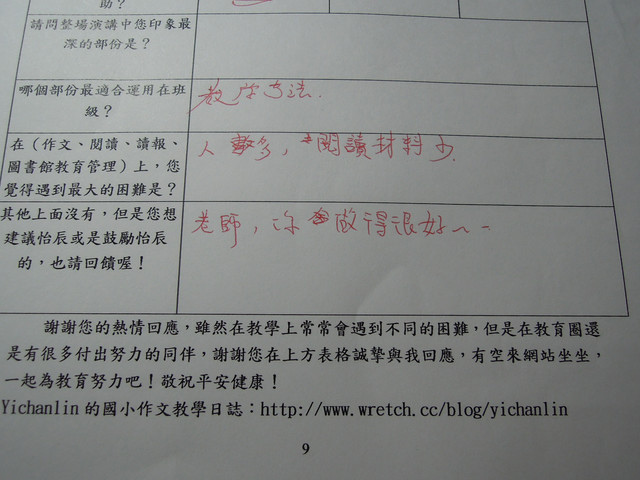 助？
請問整場演講中您印象最
深的部份是？
哪個部份最適合運用在班
級？
教學方法.
在（作文、閱讀、讀報、
圖書館教育管理）上，您
覺得遇到最大的困難是？
人數多，閱讀材料少.
其他上面沒有，但是您想
建議怡辰或是鼓勵怡辰
的，也請回饋喔！
老師，你做得很好~~
謝謝您的熱情回應，雖然在教學上常常會遇到不同的困難，但是在教育圈還
是有很多付出努力的同伴，謝謝您在上方表格誠摯與我回應，有空來網站坐坐，
一起為教育努力吧！敬祝平安健康！
Yichanlin 的國小作文教學日誌：http://www.wretch.cc/blog/yichanlin
9